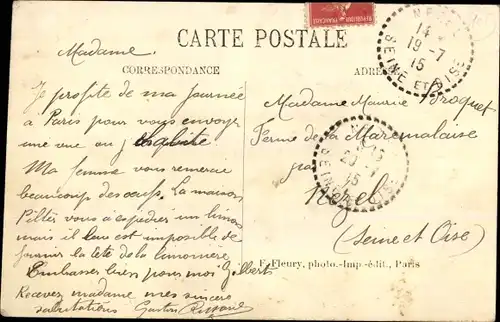 CARTE POSTALE
CORRESPONDANCE
Madame
Je profite de ma journée
à Paris pour vous envoyer
une vue ou j'habite
Ma femme vous remercie
beaucoup des œufs. La maison
Pilter vous a expédier un limon
mais il leur est impossible de
fournir la tête de la limonière
Embasser bien pour moi Gilbert
Recevez madame mes sincère
salutations Gaston
Madame Maurice Broquet
Ferme de la Maremalaise
par
Nézel
(Seine et Oise)
14
19-7
15
SEINE ET OISE
F. Fleury, photo.-Imp.-édit., Paris